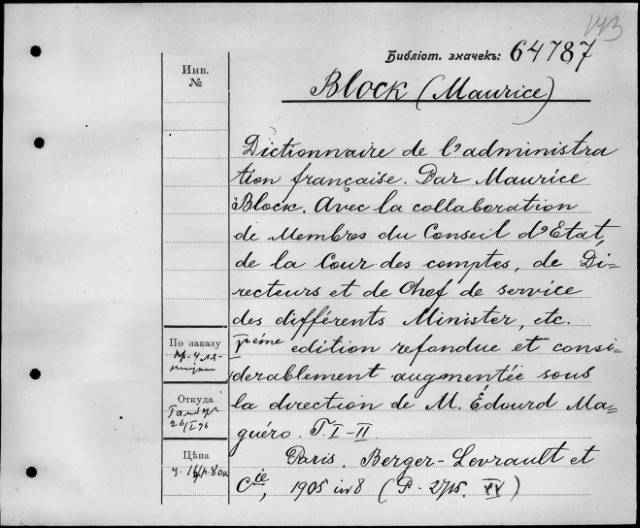 143
Библіот. значекъ: 64787
Инв.
№
Block (Maurice)
Dictionnaire de l'administra
tion française. Par Maurice
Block. Avec la collaboration
de Membres du Conseil d'Etat,
de la Cour des comptes, de Di-
recteurs et de Chef de service
des différents Minister, etc.
édition refondue et consi-
derablement augmentée sous
la direction de M. Édourd Ma-
guéro. T. I-II.
Paris. Berger-Levrault et
Cie, 1905 in 8
По заказу
Откуда
Цѣна